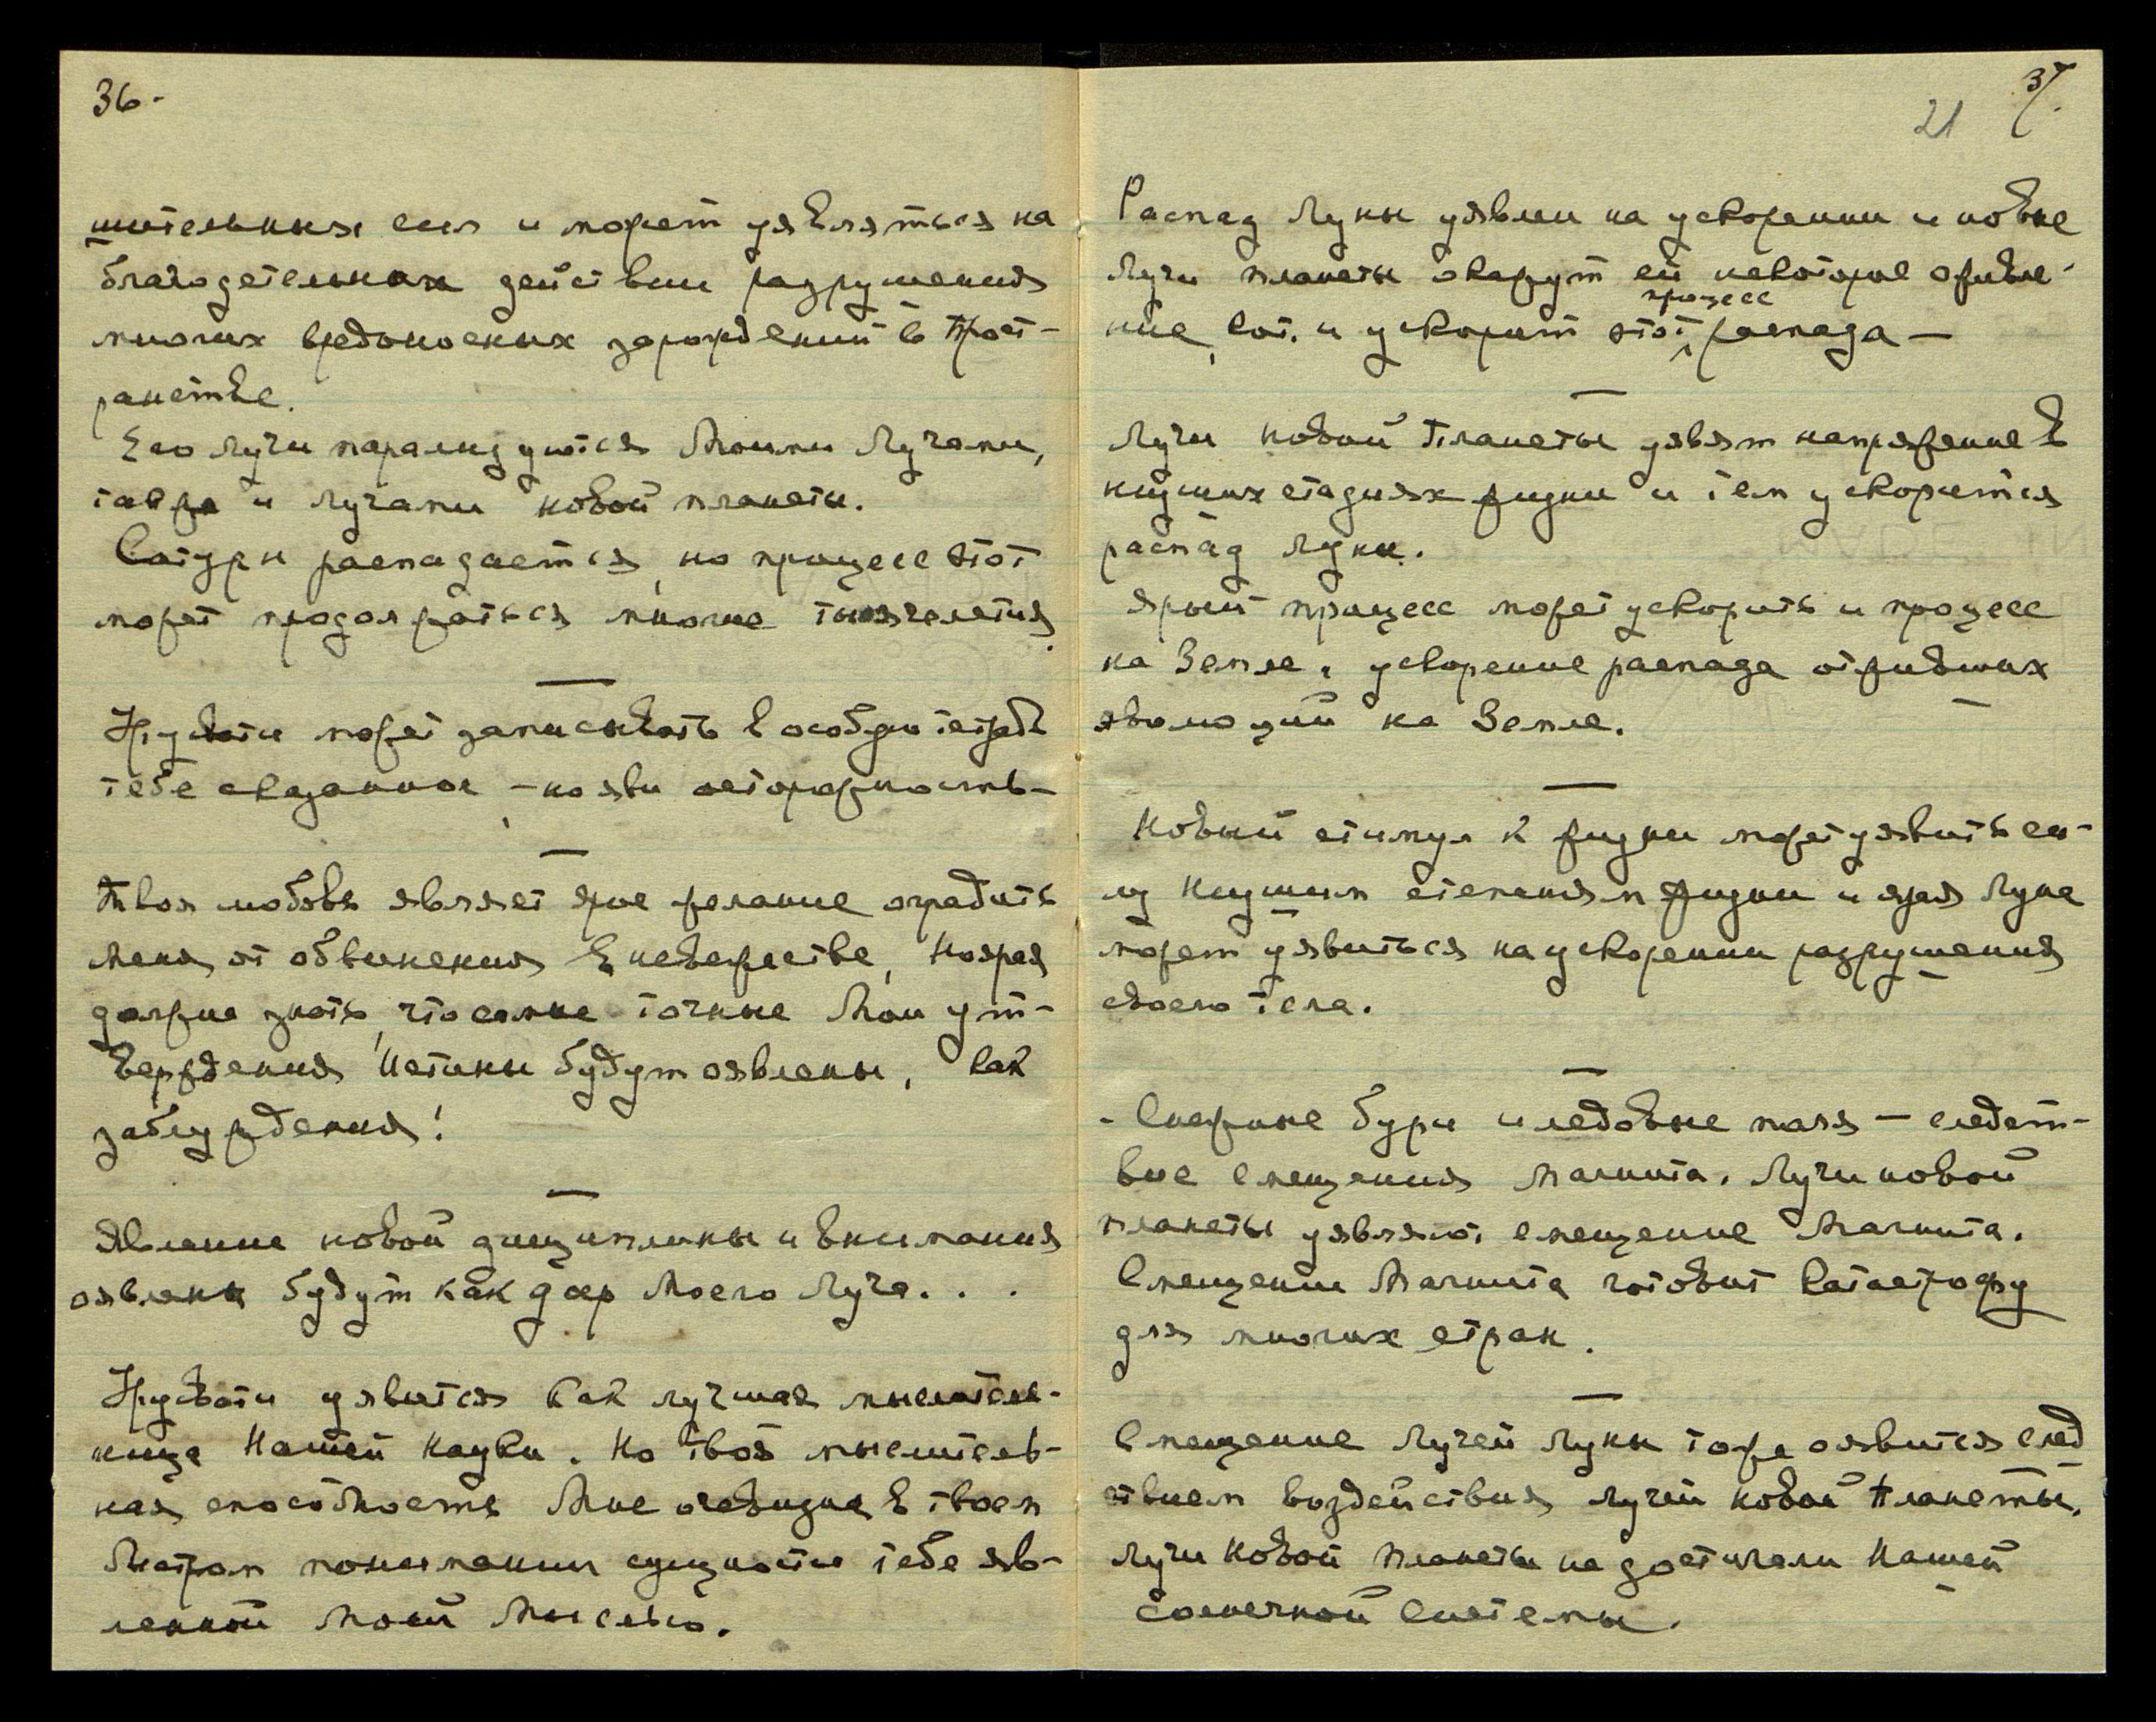 36.
шительных сил и может уявляться на
благодетельном действии разрушения
многих вредоносных зарождений в Прост-
ранстве.
Его лучи парализуются Моими Лучами,
также и лучами новой планеты.
Сатурн распадается, но процесс этот
может продолжаться многие тысячелетия.
Урусвати может записывать в особую тетрадь
тебе сказанное, – но яви осторожность –
Твоя любовь являет ярое желание оградить
Меня от обвинения в невежестве, Но ярая
должна знать, что самые точные Мои ут-
верждения Истины будут оявлены, как
заблуждения!
Явление новой дисциплины и внимания
оявлены будут как дар Моего Луча. . .
Урусвати уявится как лучшая мыслитель-
ница Нашей Науки. Но твоя мыслитель-
ная способность Мне очевидна в твоем
быстром понимании сущности тебе яв-
ленной Моей Мыслью.
37.
21
Распад Луны уявлен на ускорении и новые
Лучи планеты окажут ей некоторое оживле-
ние, кот. и ускорит этот процесс распада –
Лучи новой Планеты уявят напряжение в
низших стадиях жизни и тем ускорится
распад Луны.
Ярый процесс может ускорить и процесс
на Земле, ускорение распада отживших
эволюций на Земле.
Новый стимул к жизни может уявить си-
лу низшим степеням жизни и ярая Луна
может уявиться на ускорении разрушения
своего тела.
– Снежные бури и ледовые поля – следст-
вие смещения магнита. Лучи новой
планеты уявляют смещение Магнита.
Смещении Магнита готовит катастрофу
для многих стран.
Смещение Лучей Луны тоже оявится след
ствием воздействия лучей новой Планеты.
Лучи Новой Планеты не достигали Нашей
солнечной системы.